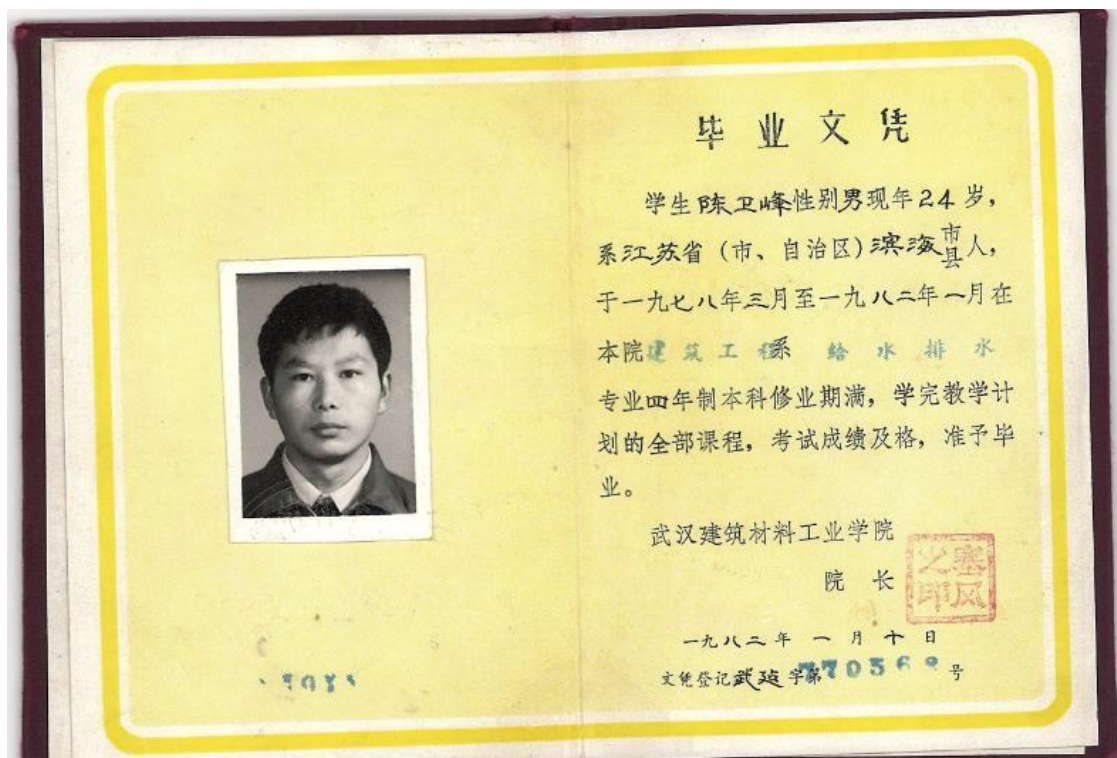 毕业文凭
学生陈卫峰性别男现年24岁，
系江苏省（市、自治区）滨海市县人，
于一九七八年三月至一九八二年一月在
本院建筑工程系 给水排水
专业四年制本科修业期满，学完教学计
划的全部课程，考试成绩及格，准予毕
业。
武汉建筑材料工业学院
院 长
塞风之印
一九八二年 一 月 十 日
文凭登记武建字第 号